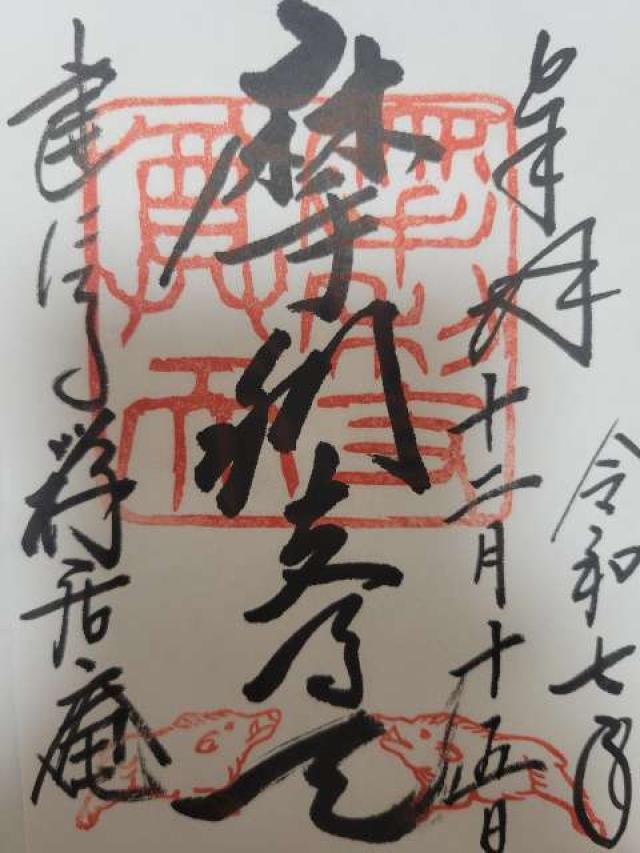 令和七年
奉拝 十二月十五日
摩利支尊天
建仁寺 禅居庵